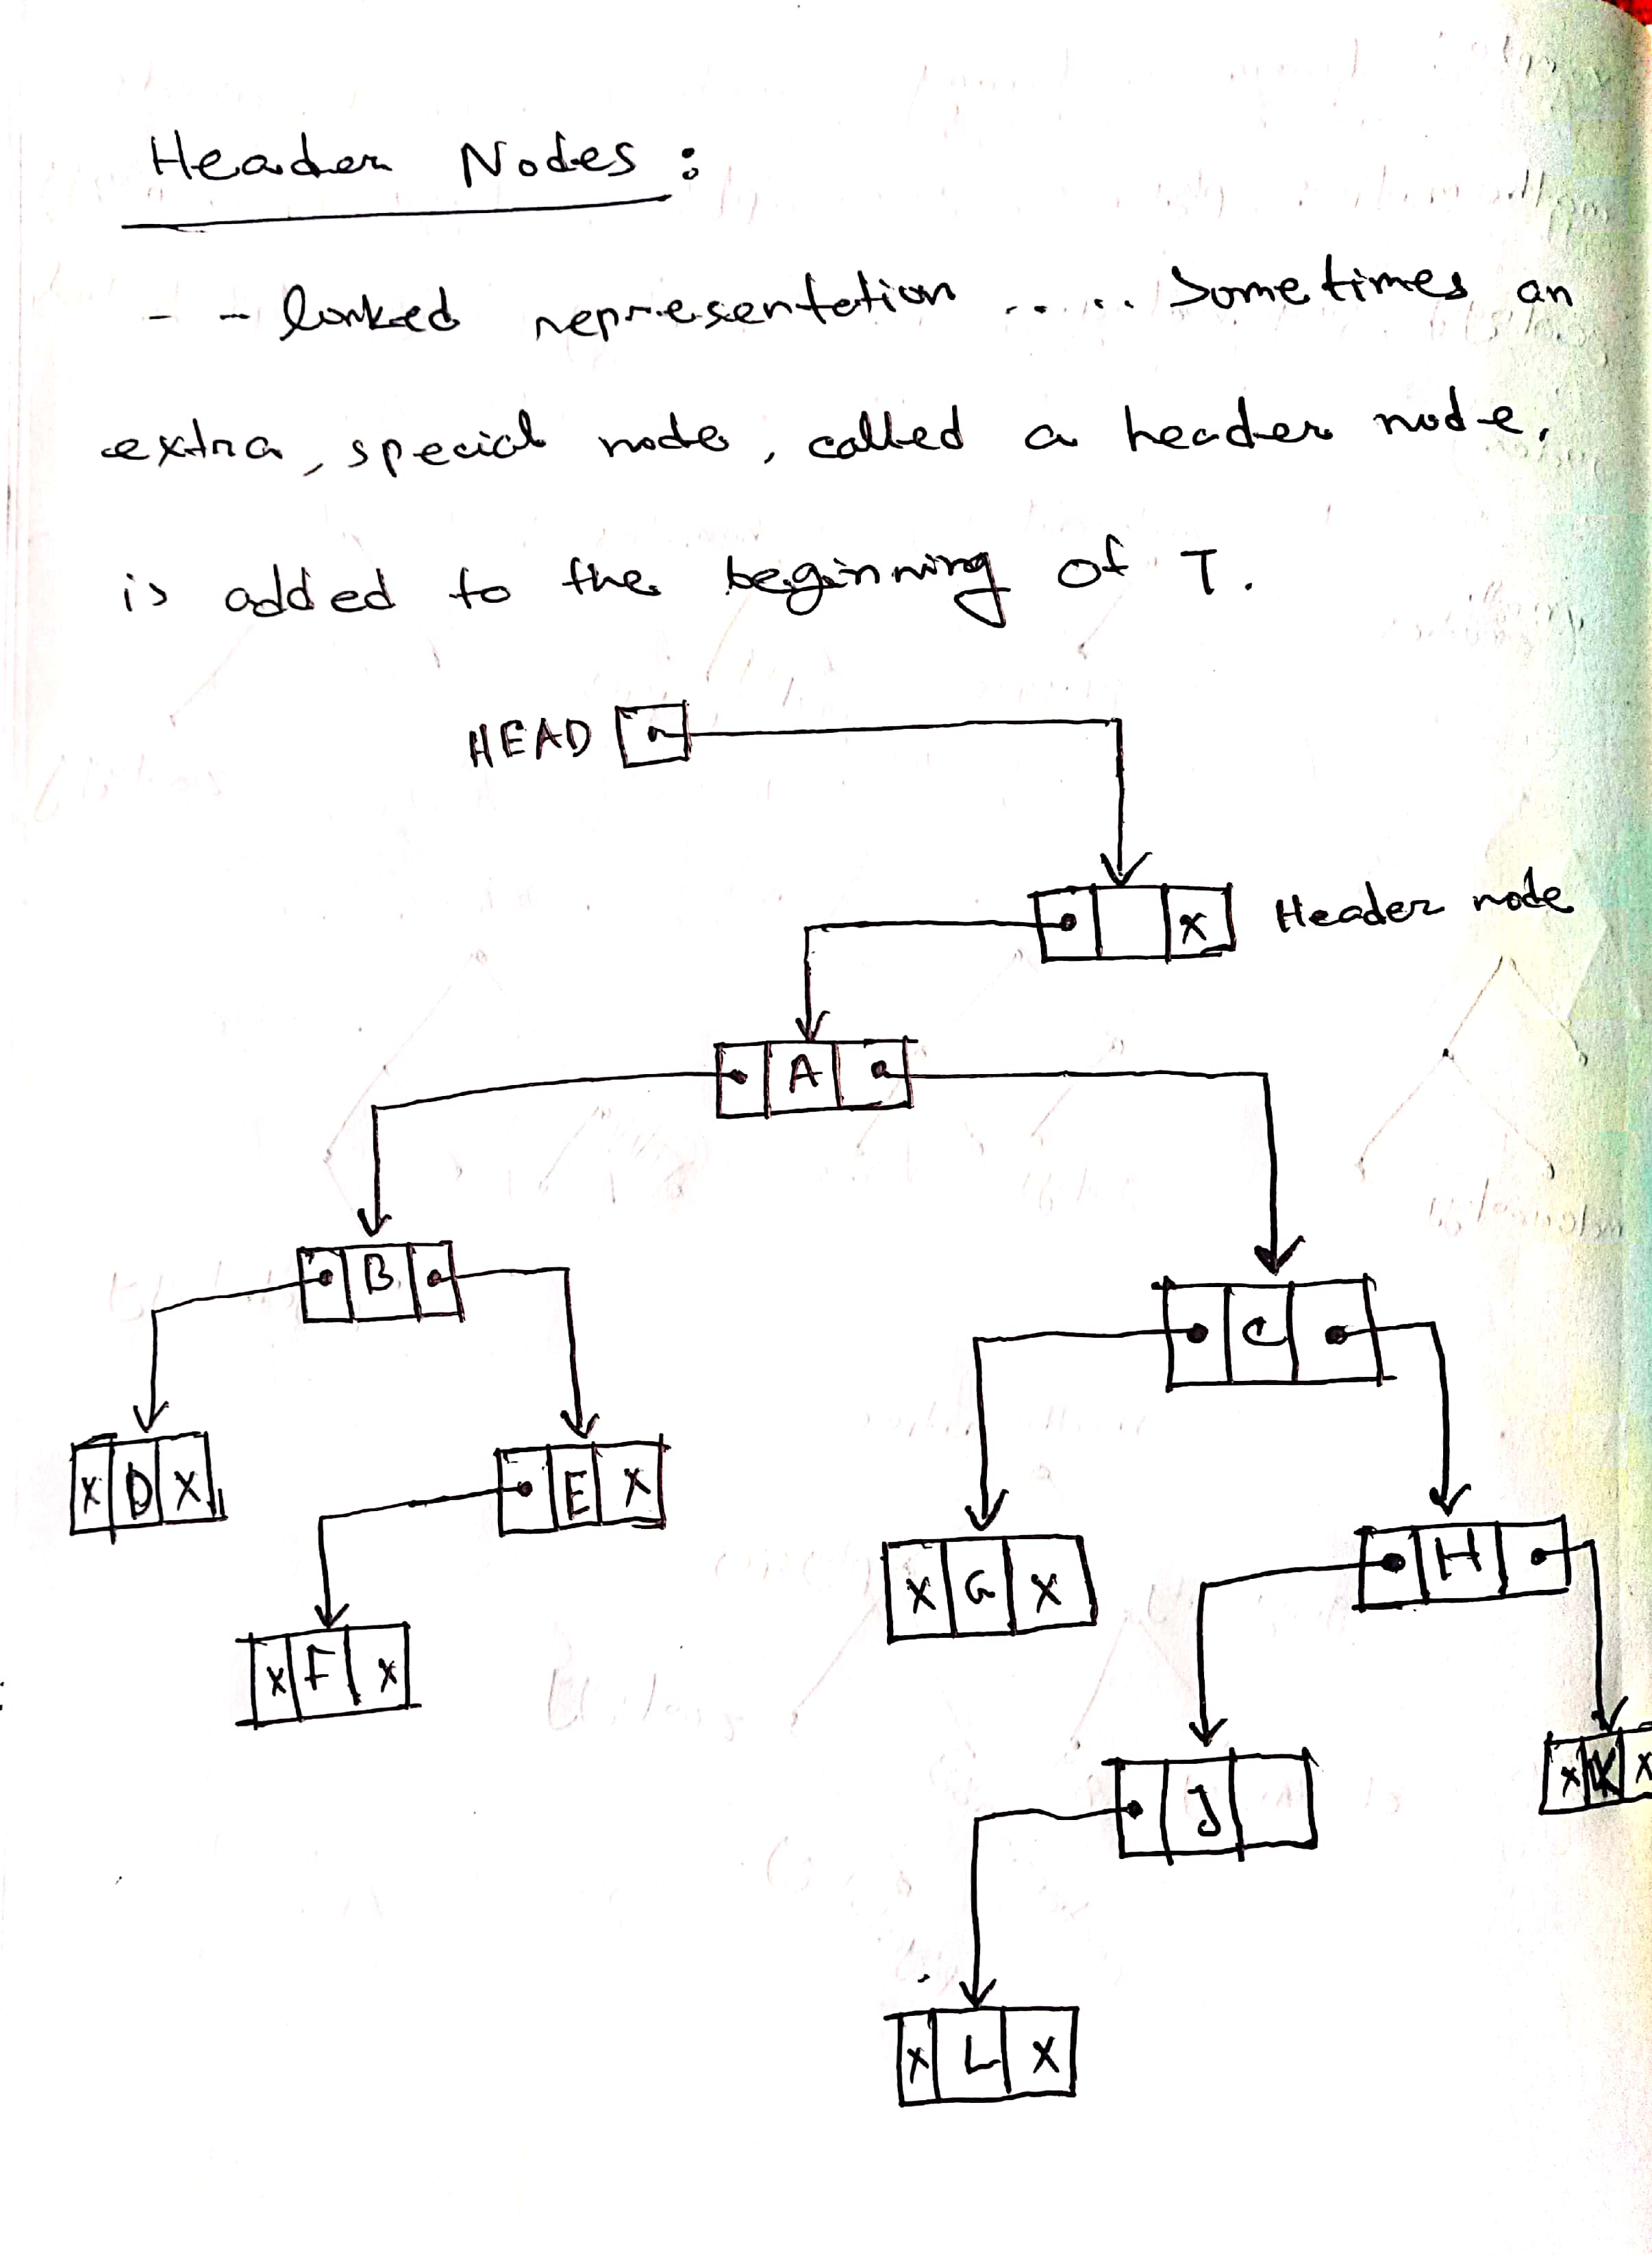 Header Nodes :
- - linked representation ..... Sometimes an
extra, special node, called a header node,
is added to the beginning of T.
HEAD
x Header node
A
B
C
x D x
E x
x G x
H
x F x
J
x K x
x L x